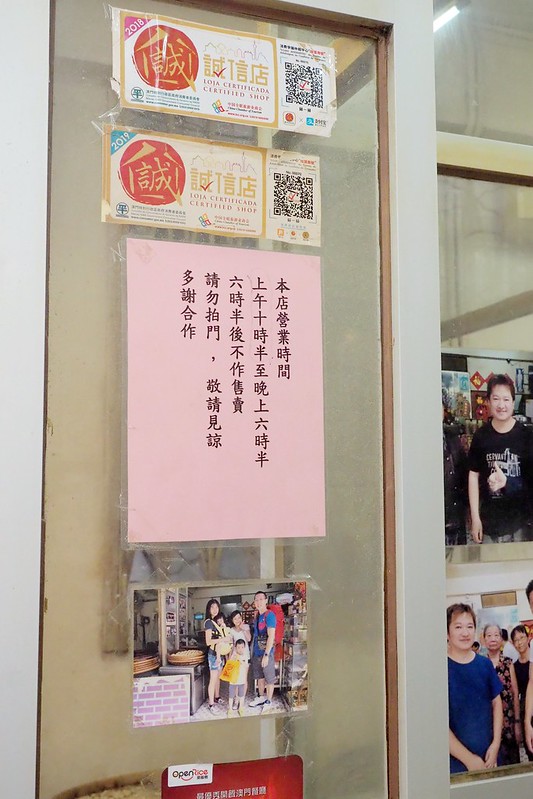 2018
誠
誠信店
LOJA CERTIFICADA
CERTIFIED SHOP
2019
誠
誠信店
LOJA CERTIFICADA
CERTIFIED SHOP
本店營業時間
上午十時半至晚上六時半
六時半後不作售賣
請勿拍門，敬請見諒
多謝合作
OpenRice
最優秀開飯澳門餐廳